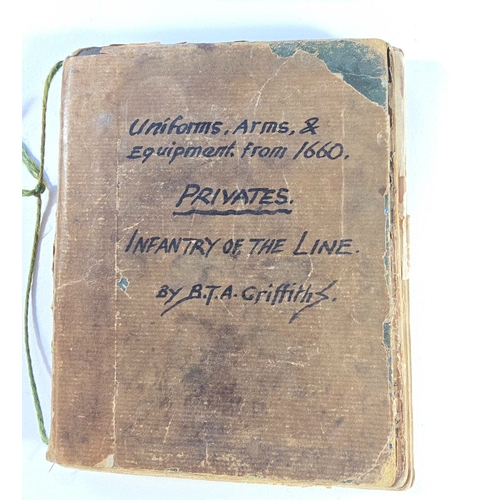 Uniforms, Arms, &
Equipment. from 1660.
PRIVATES.
INFANTRY OF THE LINE.
By B.T.A. Griffiths.